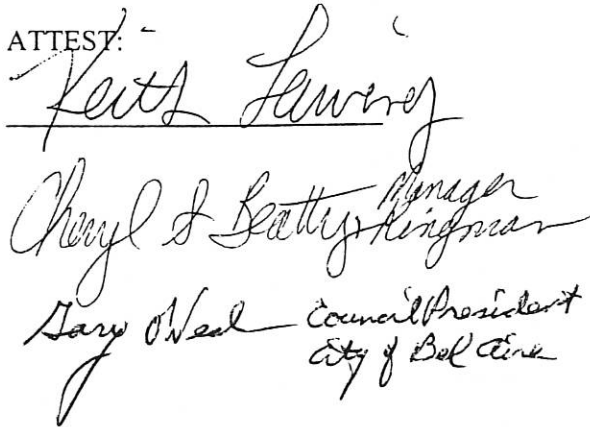 ATTEST:
Keith
Cheryl S Beatty, Manager
Kingman
Gary O'Neal Council President
City of Bel Aire